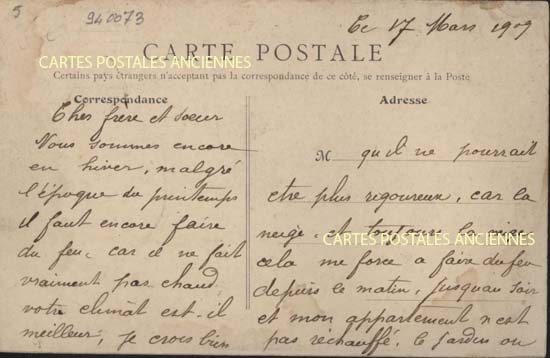 5
940073
Le 17 Mars 1909
CARTES POSTALES ANCIENNES
CARTE POSTALE
Certains pays étrangers n'acceptant pas la correspondance de ce côté, se renseigner à la Poste
Correspondance
Chers frère et soeur
Nous sommes encore
en hiver, malgré
l'époque du printemps
il faut encore faire
du feu, car il ne fait
vraiment pas chaud
votre climat est-il
meilleur, je crois bien
Adresse
M qu il ne pourrait
etre plus rigoureux, car la
neige, et toujours la neige
CARTES POSTALES ANCIENNES
cela me force a faire du feu
depuis le matin, jusqu'au soir
et mon appartement n'est
pas réchauffé. Le jardin ou